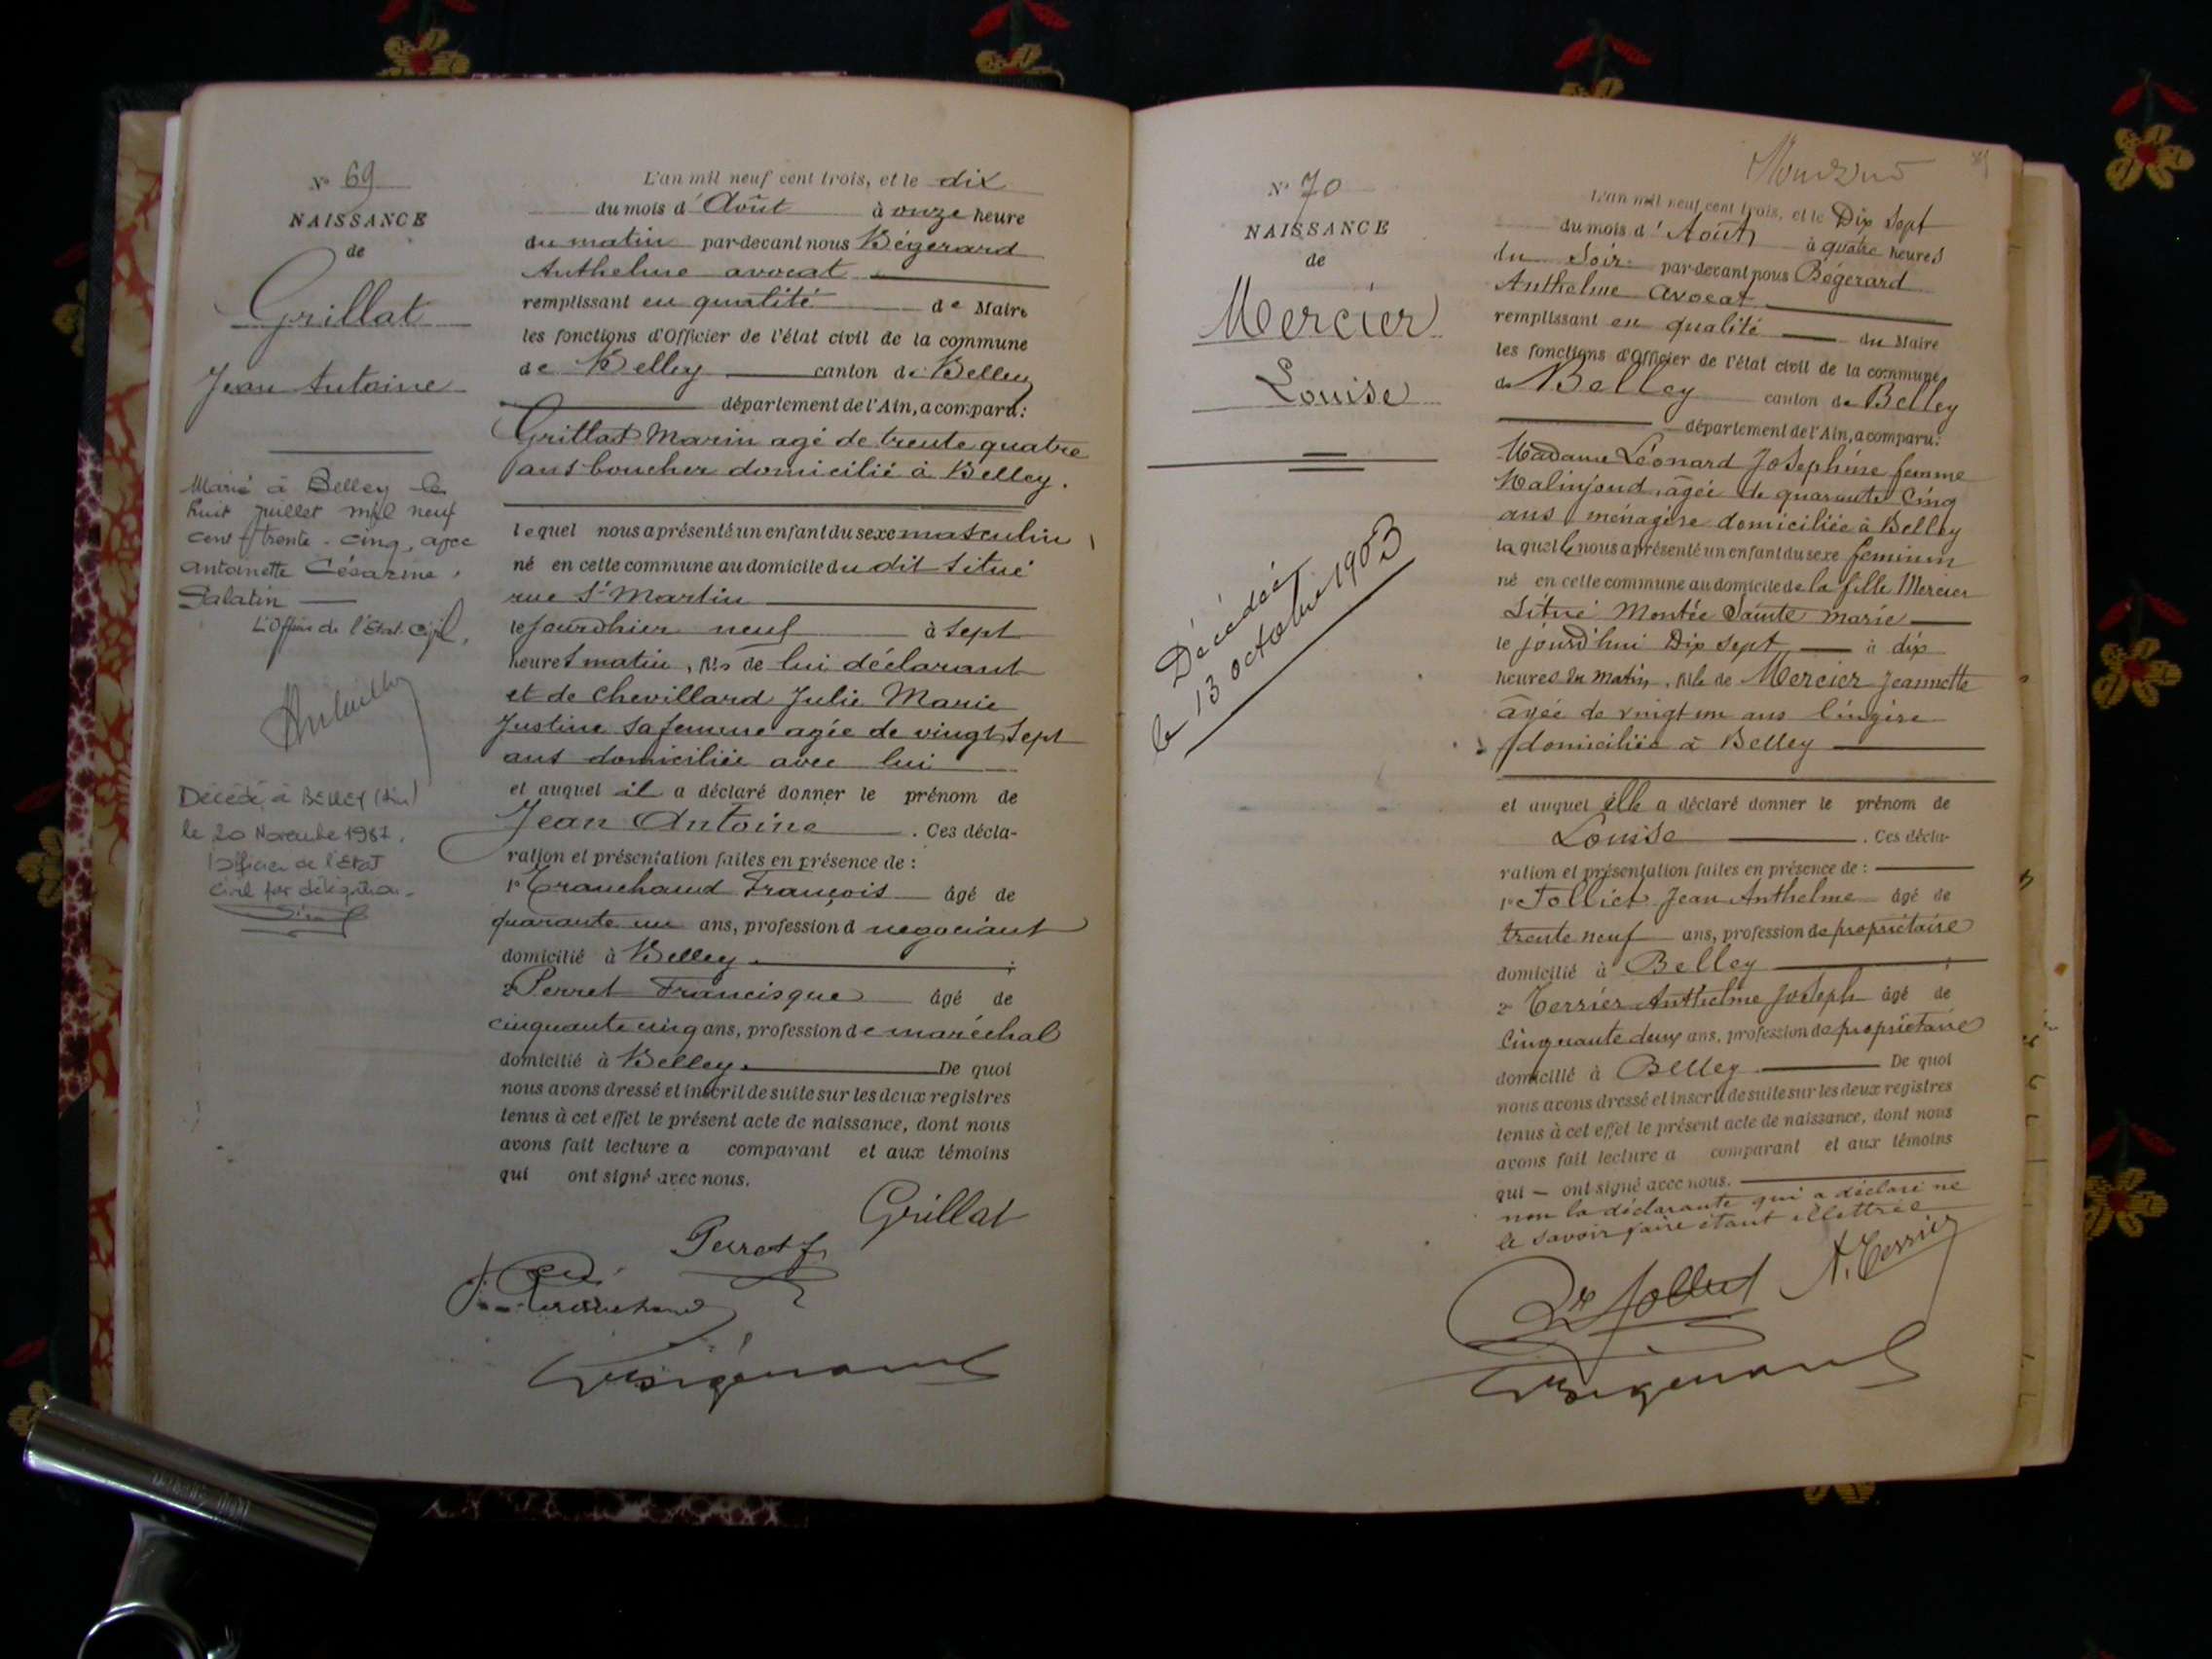 N° 69
NAISSANCE
de
Grillat
Jean Antoine
Marié à Belley le
huit juillet mil neuf
cent trente-cinq, avec
Antoinette Césarine
Salatin
L'Officier de l'État-Civil,
Décédé à BELLEY (Ain)
le 20 Novembre 1987.
l'Officier de l'Etat
Civil par délégation
L'an mil neuf cent trois, et le dix
du mois d'Août à onze heure
du matin par-devant nous Bégerard
Anthelme avocat
remplissant en qualité de Maire
les fonctions d'Officier de l'état civil de la commune
de Belley canton de Belley
département de l'Ain, a comparu:
Grillat Marin agé de trente quatre
ans boucher domicilié à Belley.
lequel nous a présenté un enfant du sexe masculin
né en cette commune au domicile du dit situé
rue St Martin
le jourdhier neuf à sept
heures matin, fils de lui déclarant
et de Chevillard Julie Marie
Justine sa femme agée de vingt sept
ans domiciliée avec lui
et auquel il a déclaré donner le prénom de
Jean Antoine. Ces décla-
ration et présentation faites en présence de :
1° Tranchand François âgé de
quarante un ans, profession d negociant
domicilié à Belley ;
2° Perret Francisque âgé de
cinquante cinq ans, profession de maréchal
domicilié à Belley. De quoi
nous avons dressé et inscrit de suite sur les deux registres
tenus à cet effet le présent acte de naissance, dont nous
avons fait lecture a comparant et aux témoins
qui ont signé avec nous.
Grillat
Perret f
N° 70
NAISSANCE
de
Mercier
Louise
Décédée
le 13 octobre 1903
L'an mil neuf cent trois, et le Dix Sept
du mois d'Août à quatre heures
du Soir par-devant nous Bégerard
Anthelme avocat
remplissant en qualité du Maire
les fonctions d'Officier de l'état civil de la commune
de Belley canton de Belley
département de l'Ain, a comparu:
Madame Léonard Joséphine femme
Malinjoud, âgée de quarante cinq
ans ménagère domiciliée à Belley
laquelle nous a présenté un enfant du sexe feminin
né en cette commune au domicile de la fille Mercier
situé Montée Sainte Marie
le jourd'hui Dix sept à dix
heures du matin, fille de Mercier Jeannette
âgée de vingt un ans lingère
domiciliée à Belley
et auquel elle a déclaré donner le prénom de
Louise. Ces décla-
ration et présentation faites en présence de :
1° Jolliet Jean Anthelme âgé de
trente neuf ans, profession de propriétaire
domicilié à Belley ;
2° Terrier Anthelme Joseph âgé de
Cinquante deux ans, profession de propriétaire
domicilié à Belley. De quoi
nous avons dressé et inscrit de suite sur les deux registres
tenus à cet effet le présent acte de naissance, dont nous
avons fait lecture a comparant et aux témoins
qui ont signé avec nous.
non la déclarante qui a déclaré ne
le savoir faire étant illettrée
A. Terrier